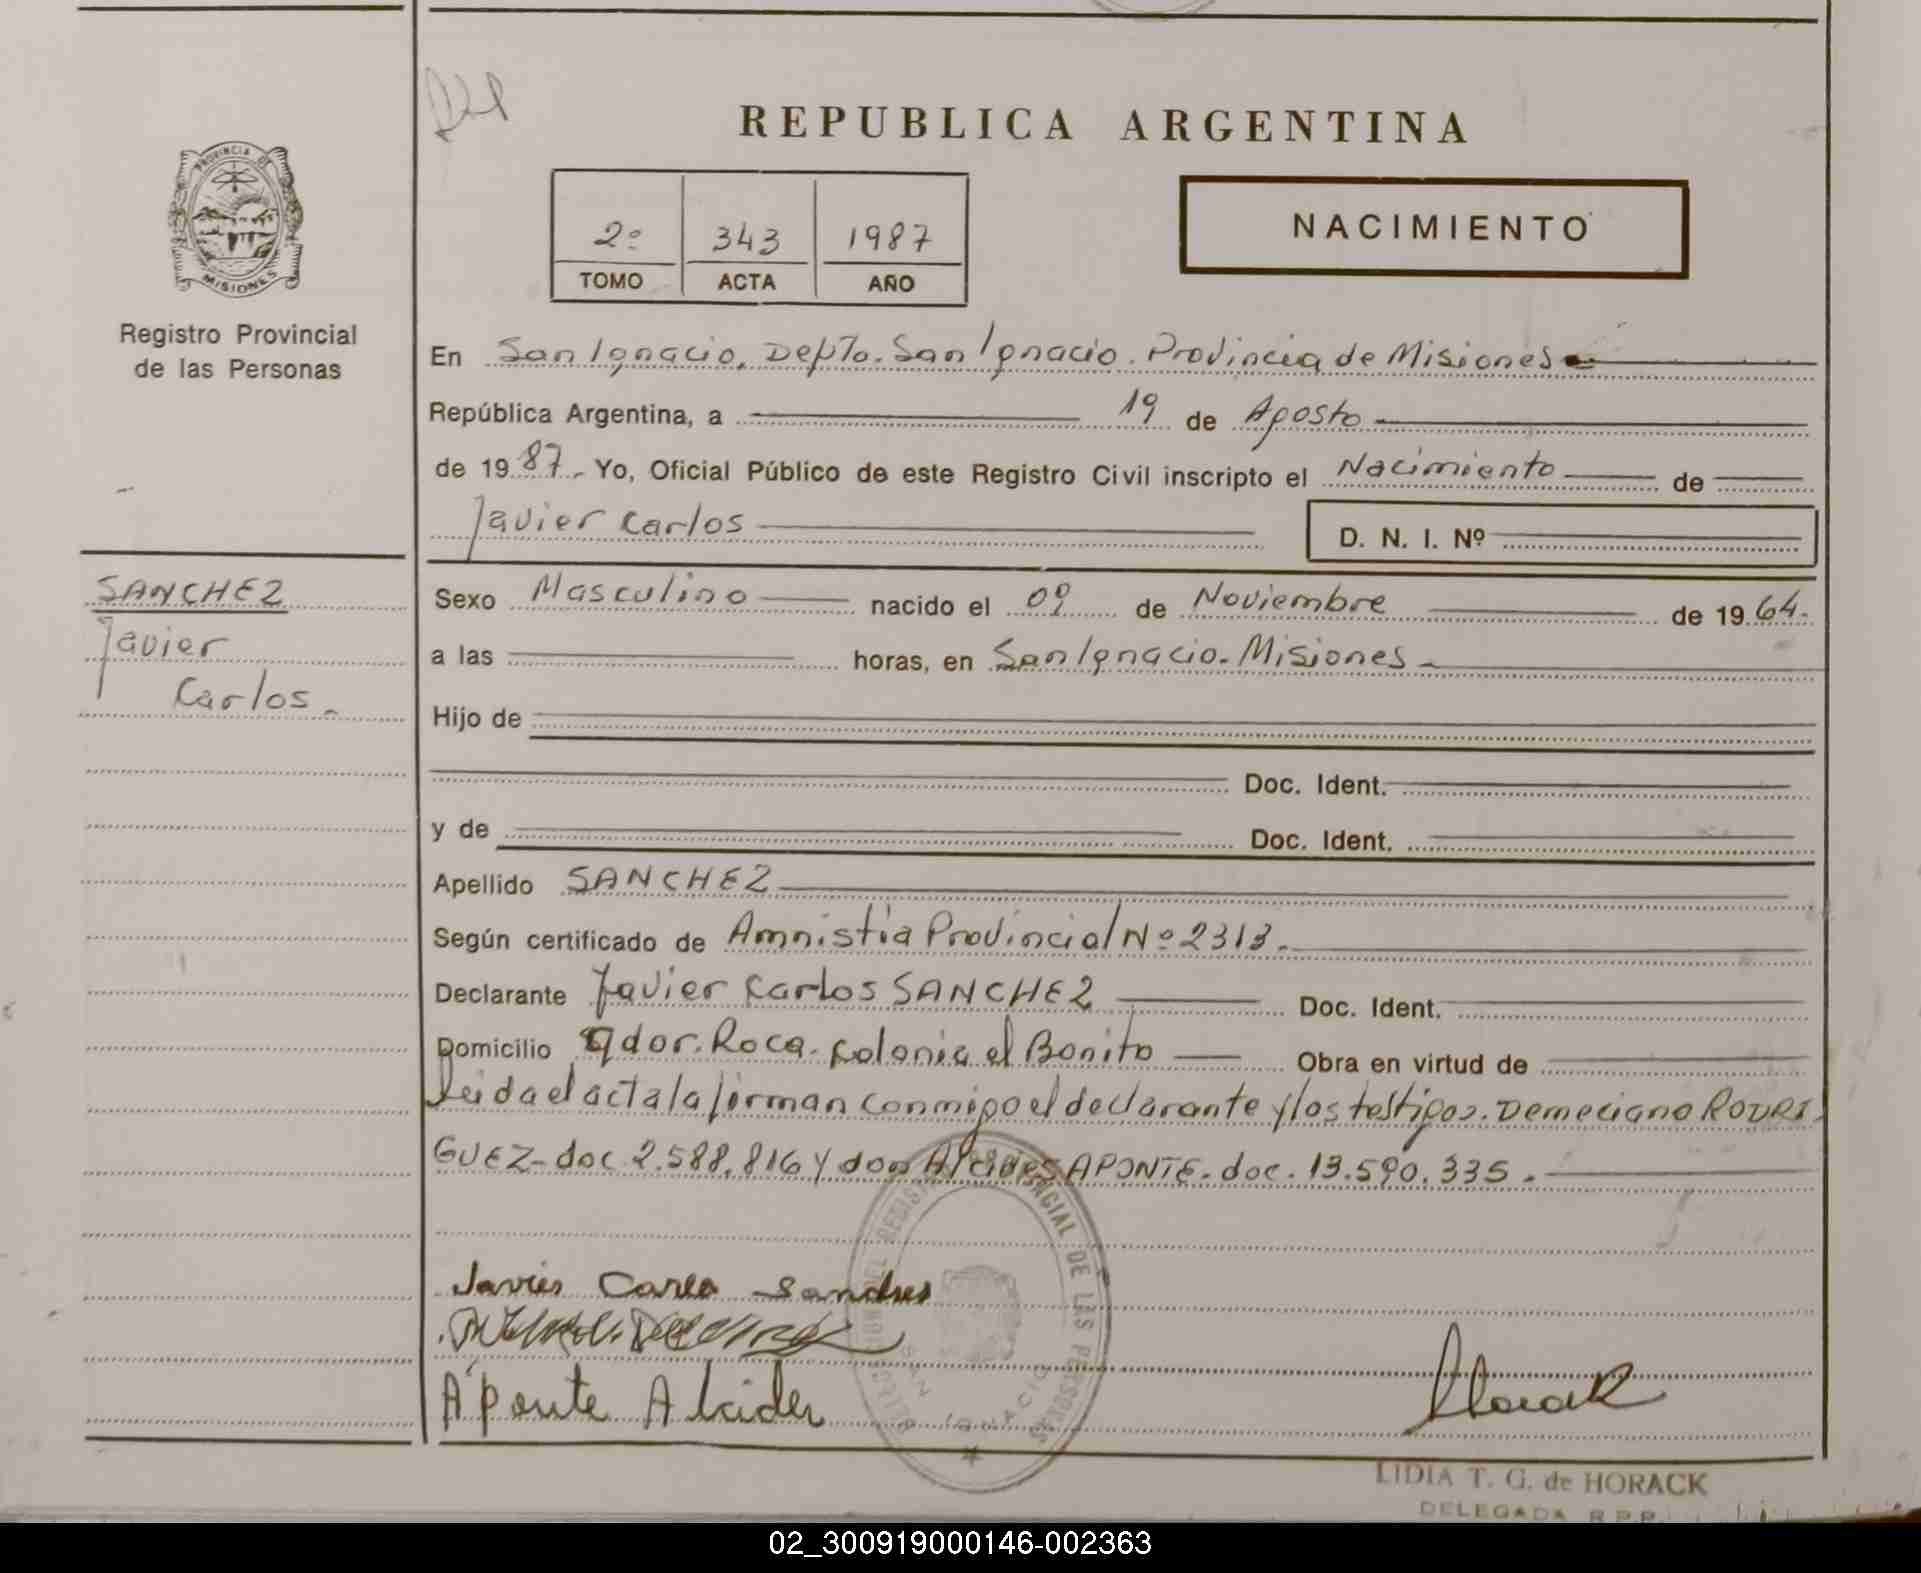 REPUBLICA ARGENTINA
PROVINCIA DE MISIONES
Registro Provincial
de las Personas
2º 343 1987
TOMO ACTA AÑO
NACIMIENTO
En San Ignacio, Depto. San Ignacio. Provincia de Misiones
República Argentina, a 19 de Agosto
de 1987. Yo, Oficial Público de este Registro Civil inscripto el Nacimiento de
Javier Carlos D. N. I. Nº
SANCHEZ
Javier
Carlos.
Sexo Masculino nacido el 09 de Noviembre de 1964.
a las horas, en San Ignacio. Misiones
Hijo de
Doc. Ident.
y de Doc. Ident.
Apellido SANCHEZ
Según certificado de Amnistia Provincial Nº 2313.
Declarante Javier Carlos SANCHEZ Doc. Ident.
Domicilio Gdor. Roca. Colonia el Bonito Obra en virtud de
Leida el acta la firman conmigo el declarante y los testigos. Demeciano RODRI
GUEZ-doc 2.588.816 y don Alcides APONTE. doc. 13.590.335.
DELEGACION DEL REGISTRO PROVINCIAL DE LAS PERSONAS
SAN IGNACIO
Javier Carlo Sandres
Aponte Alcides
Horack
LIDIA T. G. de HORACK
DELEGADA R.P.P.
02_300919000146-002363